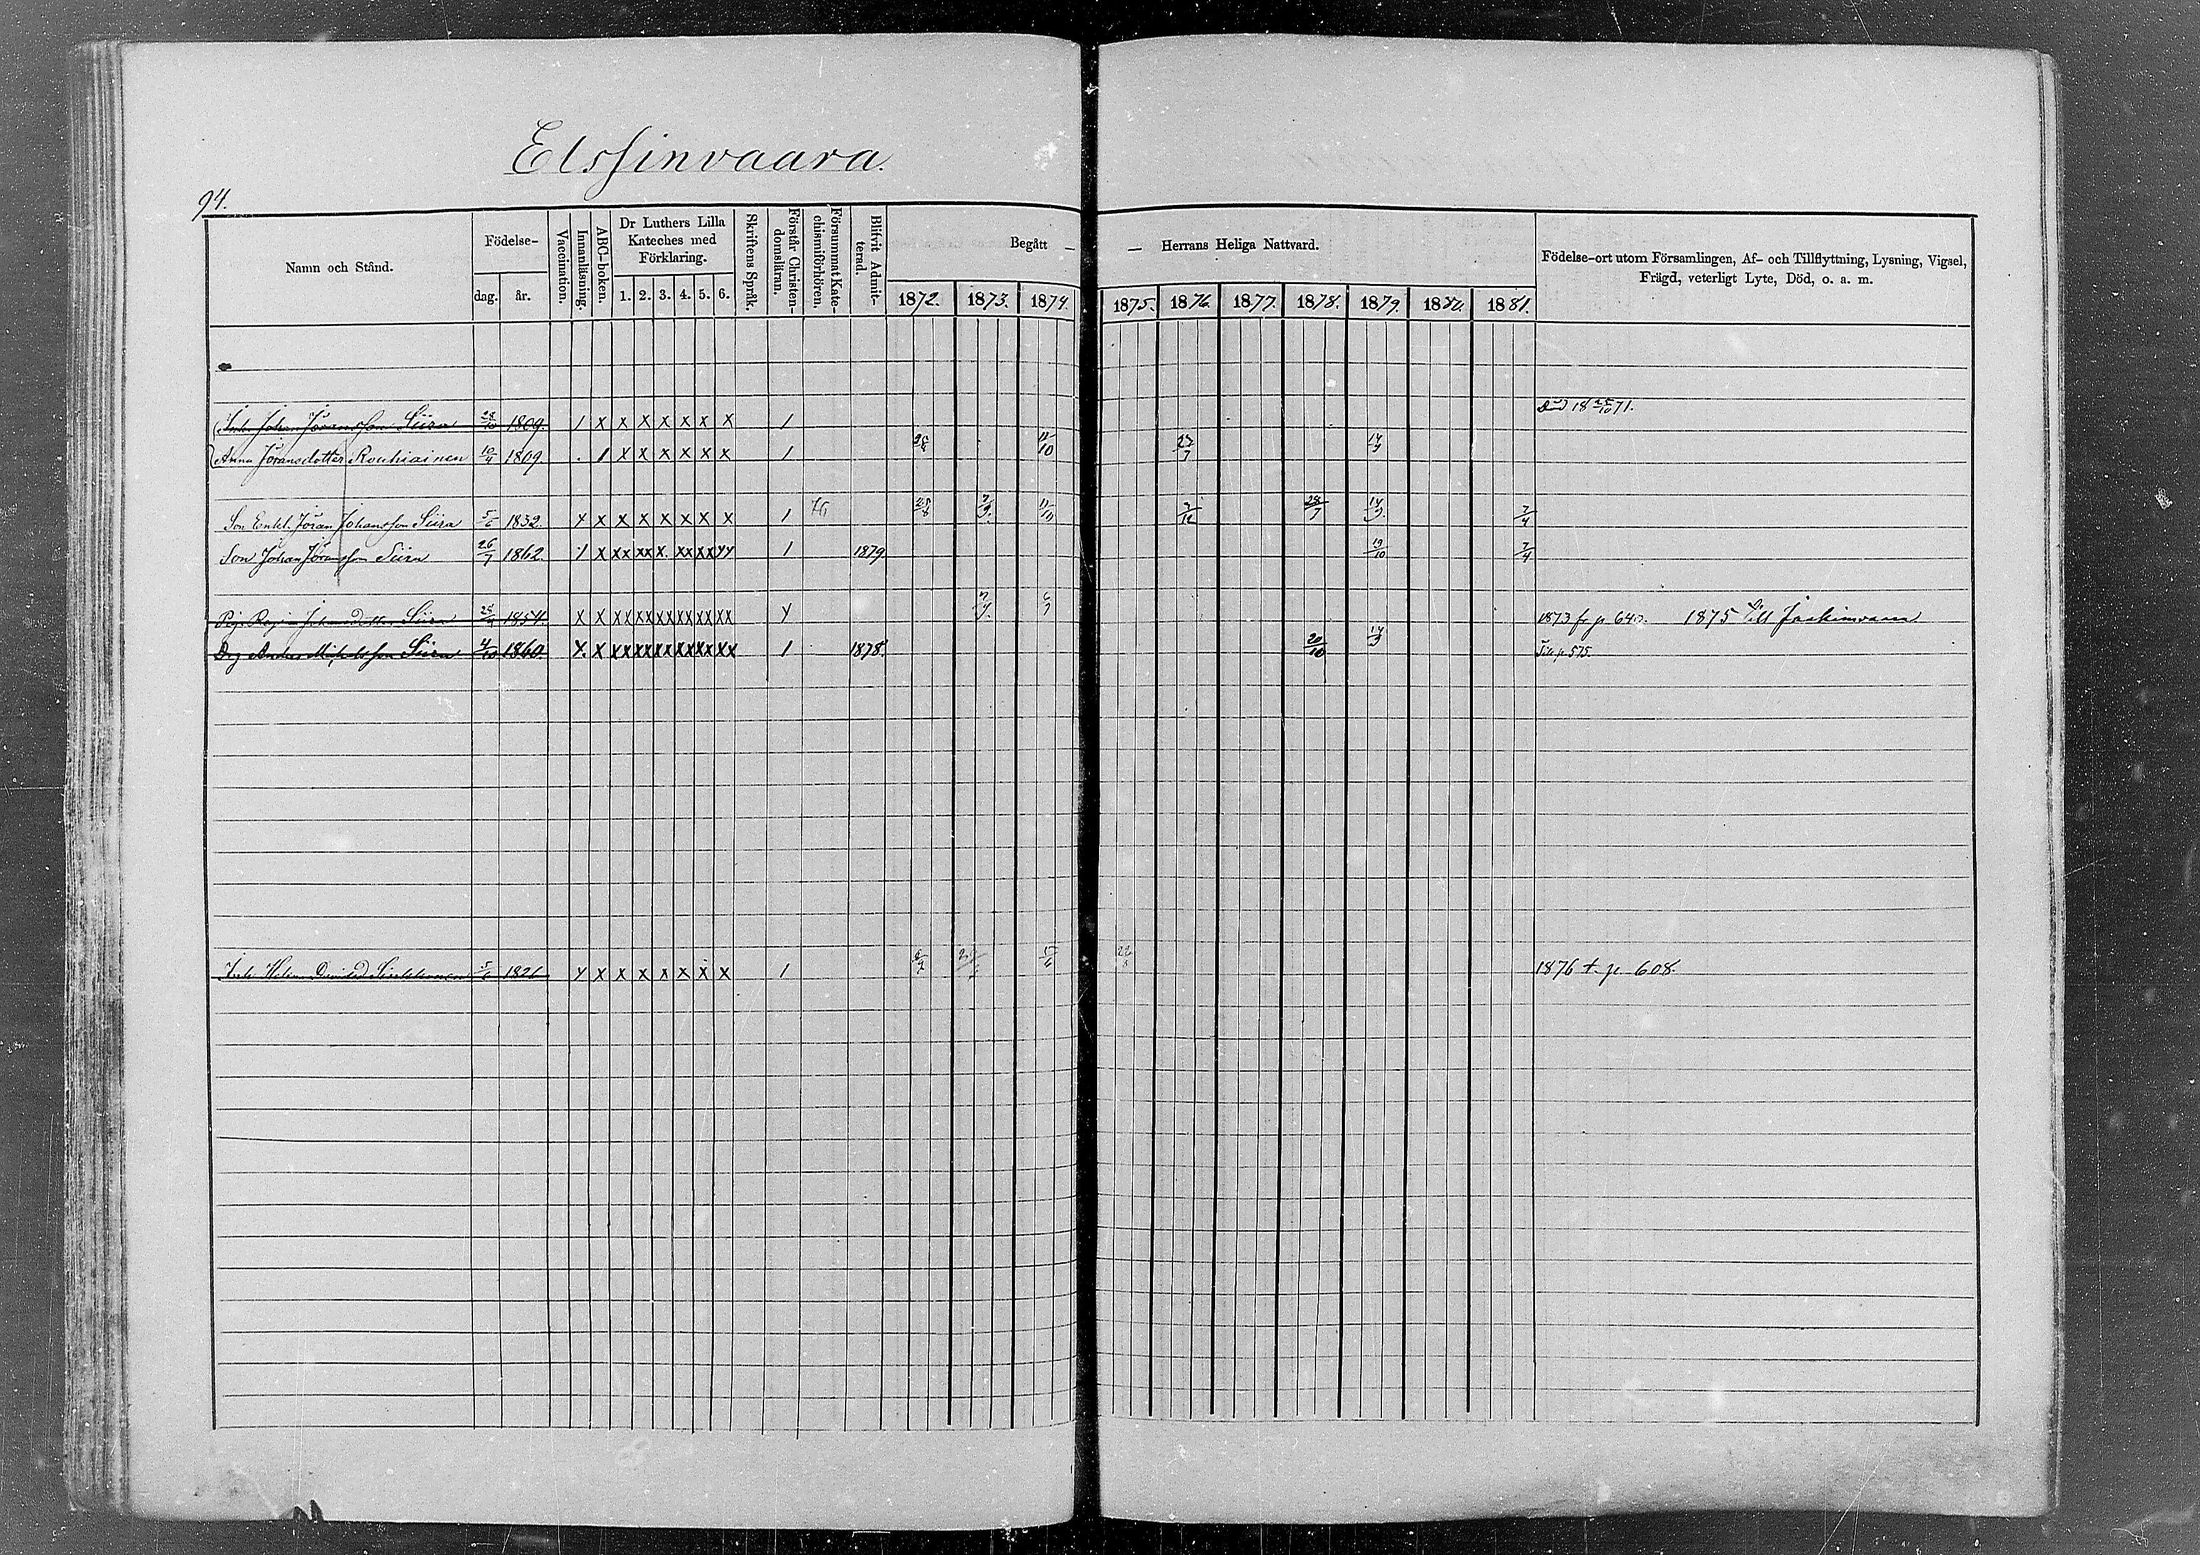 Elssinvaara.
94.
Namn och Stånd. Födelse- dag. år. Vaccination. Innanläsning. ABC-boken. Dr Luthers Lilla Kateches med Förklaring. 1. 2. 3. 4. 5. 6. Skriftens Språk. Förstår Christendomsläran. Försummat Katechismiförhören. Blifvit Admitterad. Begått — — Herrans Heliga Nattvard. 1872. 1873. 1874. 1875. 1876. 1877. 1878. 1879. 1880. 1881. Födelse-ort utom Församlingen, Af- och Tillflyttning, Lysning, Vigsel, Frägd, veterligt Lyte, Död, o. a. m.
Johan Göransson Siira 28/10 1809. 1 x x x x x x x 1 Död 18 25/10 71.
Anna Göransdotter Rouhiainen 10/4 1809 1 x x x x x x 1 11/10 23/7 14/9
Son Enkl. Göran Johansson Siira 5/6 1832. x x x x x x x x 1 76 25/8 7/9. 11/10 3/12 28/7 14/9. 3/4
Son Johan Göransson Siira 26/7 1862. x x xx xx x. xx xx xx 1 1879 19/10 3/4
Pig. Siira 1854. x x xx xx xx xx xx xx 1873 fr p 640. 1875 Till Joakimvaara
Drg Anders Michelsson Siira 4/10 1860. x. x xx xx xx xx xx xx 1 1878. 20/10 14/9 Till p 575.
Helena 5/6 1826 x x x x x x x x 1 5/6 1876 t. p. 608.